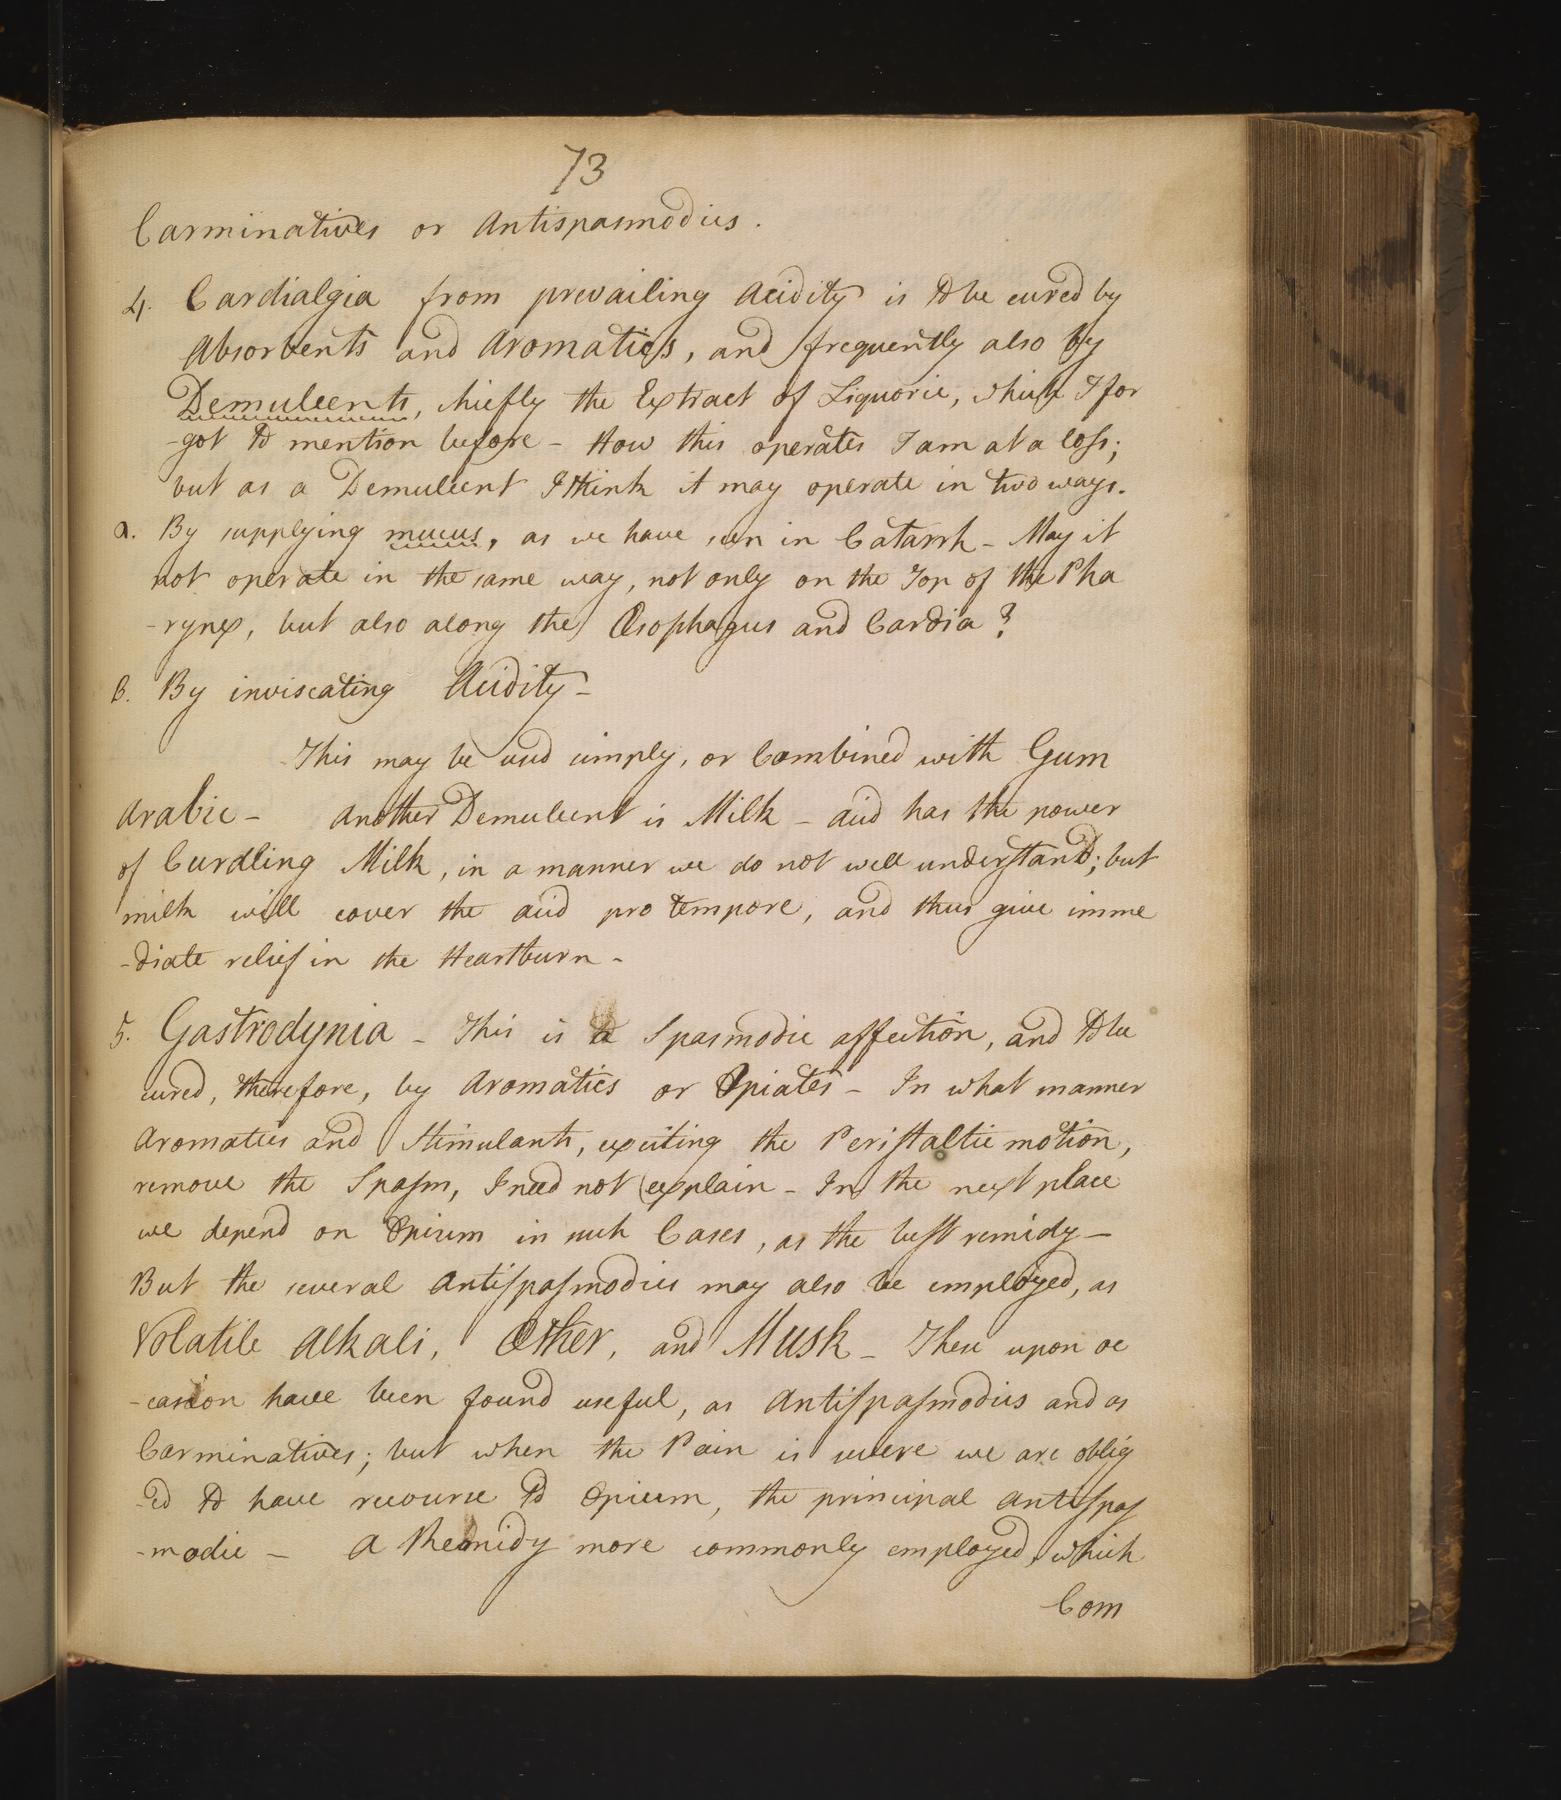 73
Carminatives or Antispasmodics.
4. Cardialgia from prevailing Acidity is to be cured by
Absorbents and Aromatics, and frequently also by
Demulcents, chiefly the Extract of Liquorice, which I for
-got to mention before - How this operates I am at a loss;
but as a Demulcent I think it may operate in two ways.
a. By supplying mucus, as we have seen in Catarrh - May it
not operate in the same way, not only on the Top of the Pha
-rynx, but also along the Œsophagus and Cardia?
B. By inviscating Acidity -
This may be used simply, or Combined with Gum
Arabic - Another Demulcent is Milk - acid has the power
of Curdling Milk, in a manner we do not well understand; but
milk will cover the acid pro tempore, and thus give imme
-diate relief in the Heartburn -
5. Gastrodynia - This is a Spasmodic affection, and to be
cured, therefore, by Aromatics or Opiates - In what manner
Aromatics and Stimulants, exciting the Peristaltic motion,
remove the Spasm, I need not explain - In the next place
we depend on Opium in such Cases, as the best remidy -
But the several Antispasmodics may also be employed, as
Volatile Alkali, Œther, and Musk - These upon oc
-casion have been found useful, as Antispasmodics and as
Carminatives; but when the Pain is severe we are oblig
-ed to have recourse to Opium, the principal Antispas
-modic - A Remidy more commonly employed, which
Com